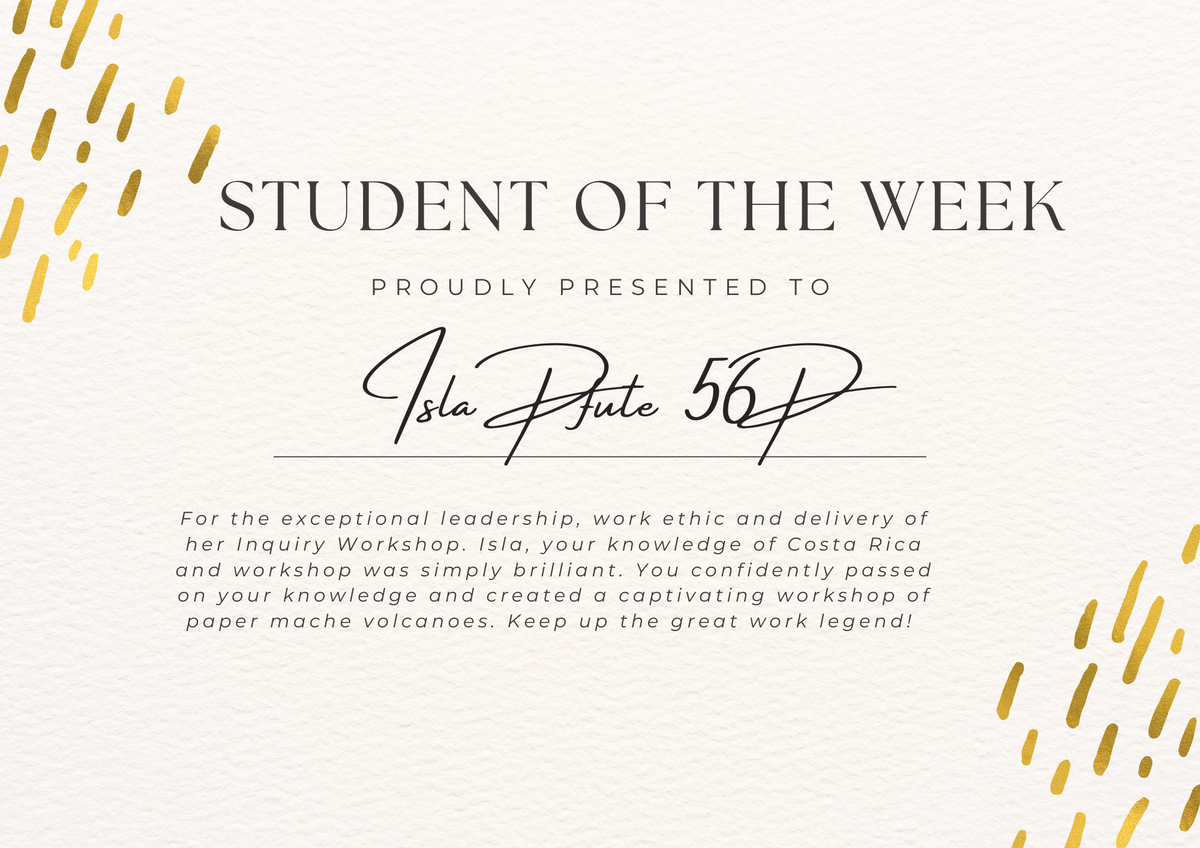 STUDENT OF THE WEEK
PROUDLY PRESENTED TO
Isla Pfute 56P
For the exceptional leadership, work ethic and delivery of
her Inquiry Workshop. Isla, your knowledge of Costa Rica
and workshop was simply brilliant. You confidently passed
on your knowledge and created a captivating workshop of
paper mache volcanoes. Keep up the great work legend!